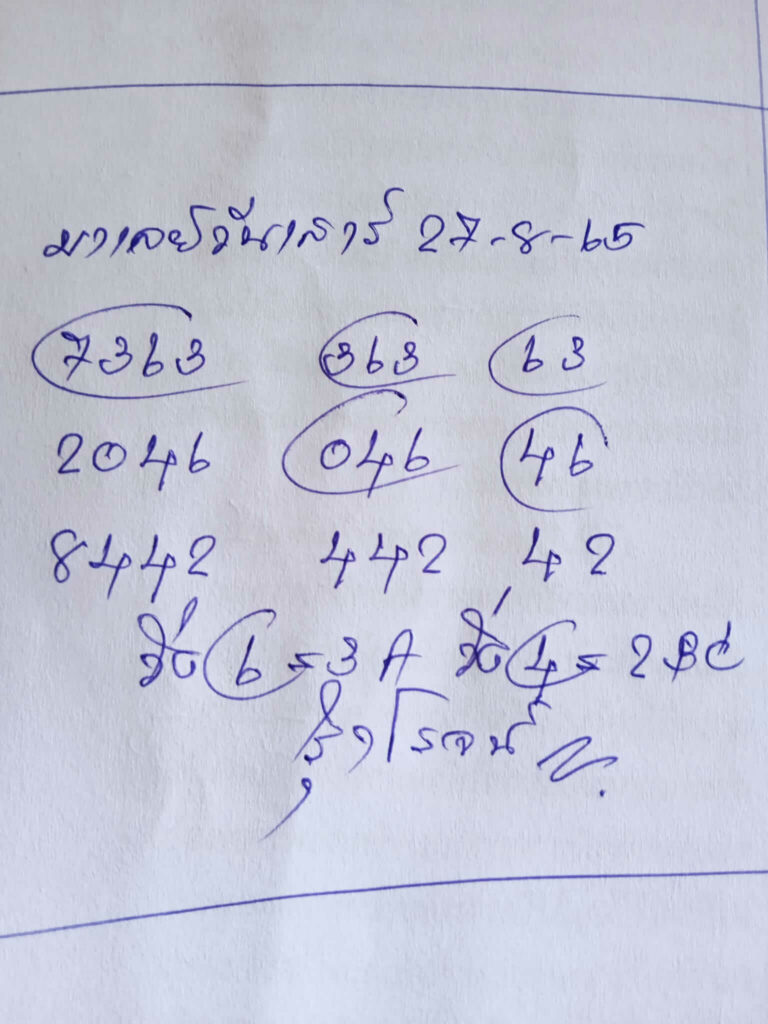 มาเลย์วันเสาร์ 27-8-65
7363 363 63
2046 046 46
8442 442 42
6 = 3A 4 = 2BC